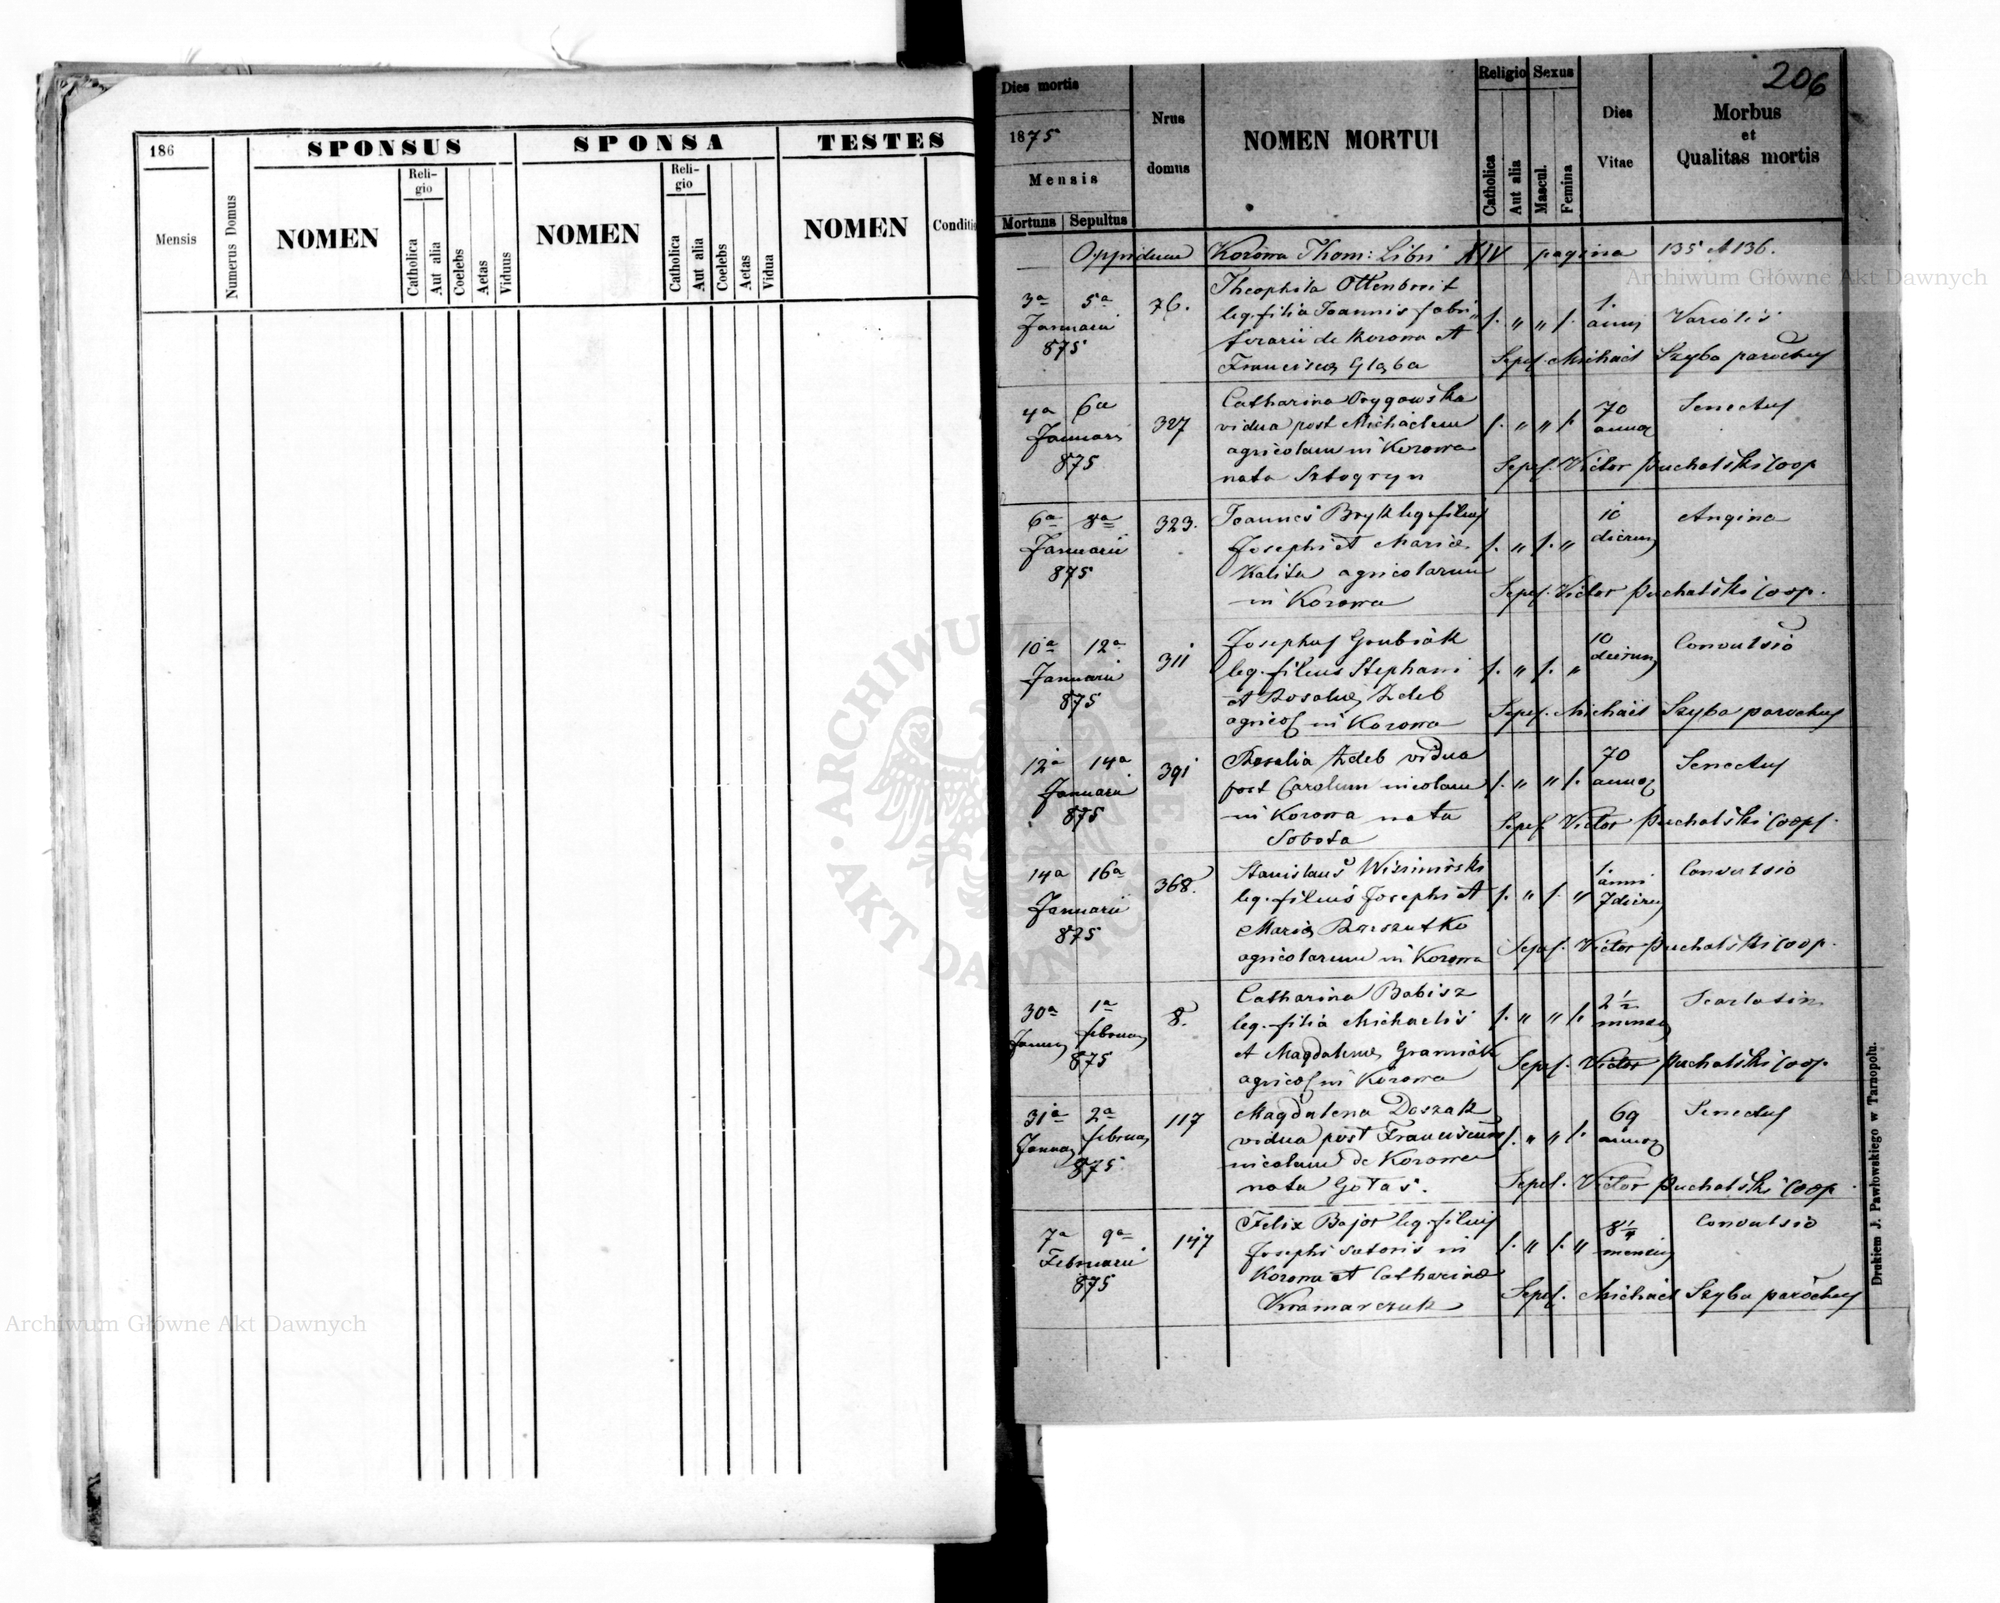 186
SPONSUS
SPONSA
TESTES
Mensis
Numerus Domus
NOMEN
Reli-
gio
Catholica
Aut alia
Coelebs
Aetas
Viduus
NOMEN
Reli-
gio
Catholica
Aut alia
Coelebs
Aetas
Vidua
NOMEN
Conditi
206
Dies mortis
1875
Mensis
Mortuus Sepultus
Nrus
domus
NOMEN MORTUI
Religio
Catholica
Aut alia
Sexus
Mascul.
Femina
Dies
Vitae
Morbus
et
Qualitas mortis
Oppidum Kozowa Thom: Libri XIV pagina 135 et 136.
3a 5a
Januarii
875
76.
Theophila Ottenbreit
leg. filia Joannis fabri
ferarii de Kozowa et
1.
anni
Variolis
Sepel. Michael Szyba parochus
4a 6a
Januar
875
327
Catharina
vidua post Michaelem
agricolam in Kozowa
nata Sztogryn
1. " " 1.
70
annor
Senectus
Sepel. Victor Puchalski Coop
6a 8a
Januarii
875
323.
Joannes Bryk leg. filius
Josephi et Mariae
Kalita agricolarum
in Kozowa
1. " 1. "
10
dierum
Angina
Sepel. Victor Puchalski Coop.
10a 12a
Januarii
875
311
Josephus Grubiak
leg. filius Stephani
et Rosaliae Zdeb
agricol in Kozowa
1. " 1. "
10
dierum
Convulsio
Sepel. Michael Szyba parochus
12a 14a
Januarii
875
391
Rosalia Zdeb vidua
post Carolum incolam
in Kozowa nata
Sobota
1. " " 1.
70
annor
Senectus
Sepel. Victor Puchalski Coop.
14a 16a
Januarii
875
368.
Stanislaus
leg. filius Josephi et
Mariae Barszutko
agricolarum in Kozowa
1. " 1. "
1.
anni
7 dierum
Convulsio
Sepel. Victor Puchalski Coop.
30a 1a
februar
875
8.
Catharina Babisz
leg. filia Michaelis
et Magdalenae
agricol in Kozowa
1. " " 1.
2 1/2
mensium
Scarlatina
Sepel. Victor Puchalski Coop.
31a 2a
februar
875
117
Magdalena Doszak
vidua post Franciscum
incolam de Kozowa
nata Gołas.
1. " " 1.
69
annor
Senectus
Sepel. Victor Puchalski Coop
7a 9a
Februarii
875
147
Felix Bajor leg. filius
Josephi sutoris in
Kozowa et Catharinae
Kramarczuk
1. " 1. "
8 1/4
mensium
Convulsio
Sepel. Michael Szyba parochus
Drukiem J. Pawłowskiego w Tarnopolu.
Archiwum Główne Akt Dawnych
ARCHIWUM GŁÓWNE AKT DAWNYCH
Archiwum Główne Akt Dawnych